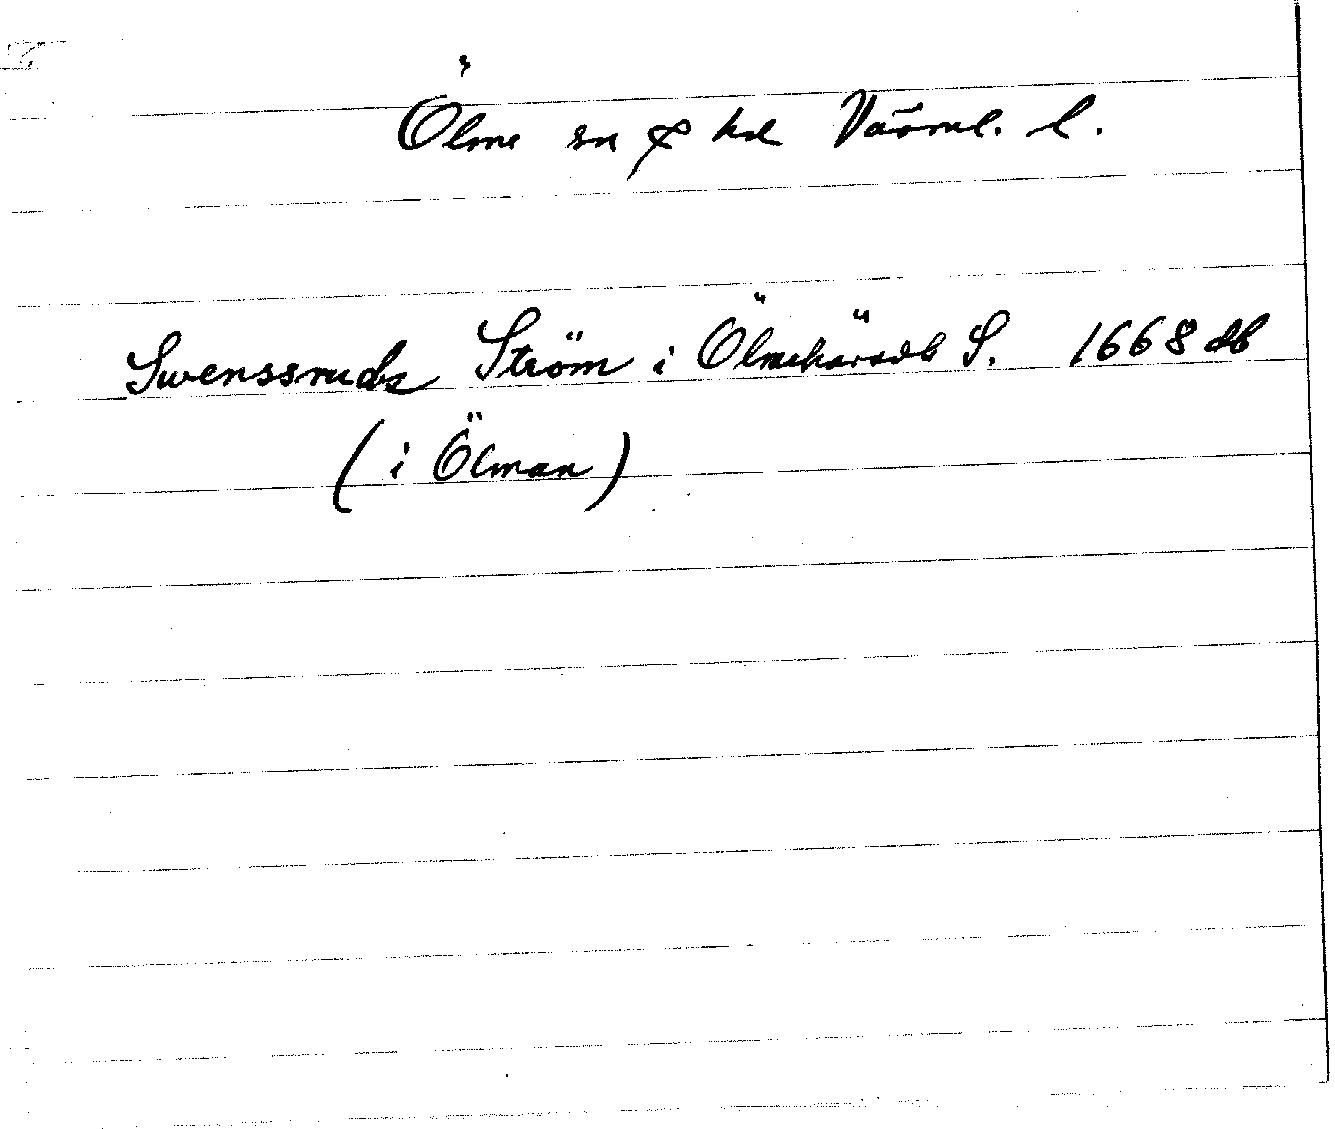 Ölme sn & hd Värml. l.
Swenssruds Ström i Ölmehäradb S. 1668 db
(i Ölman)